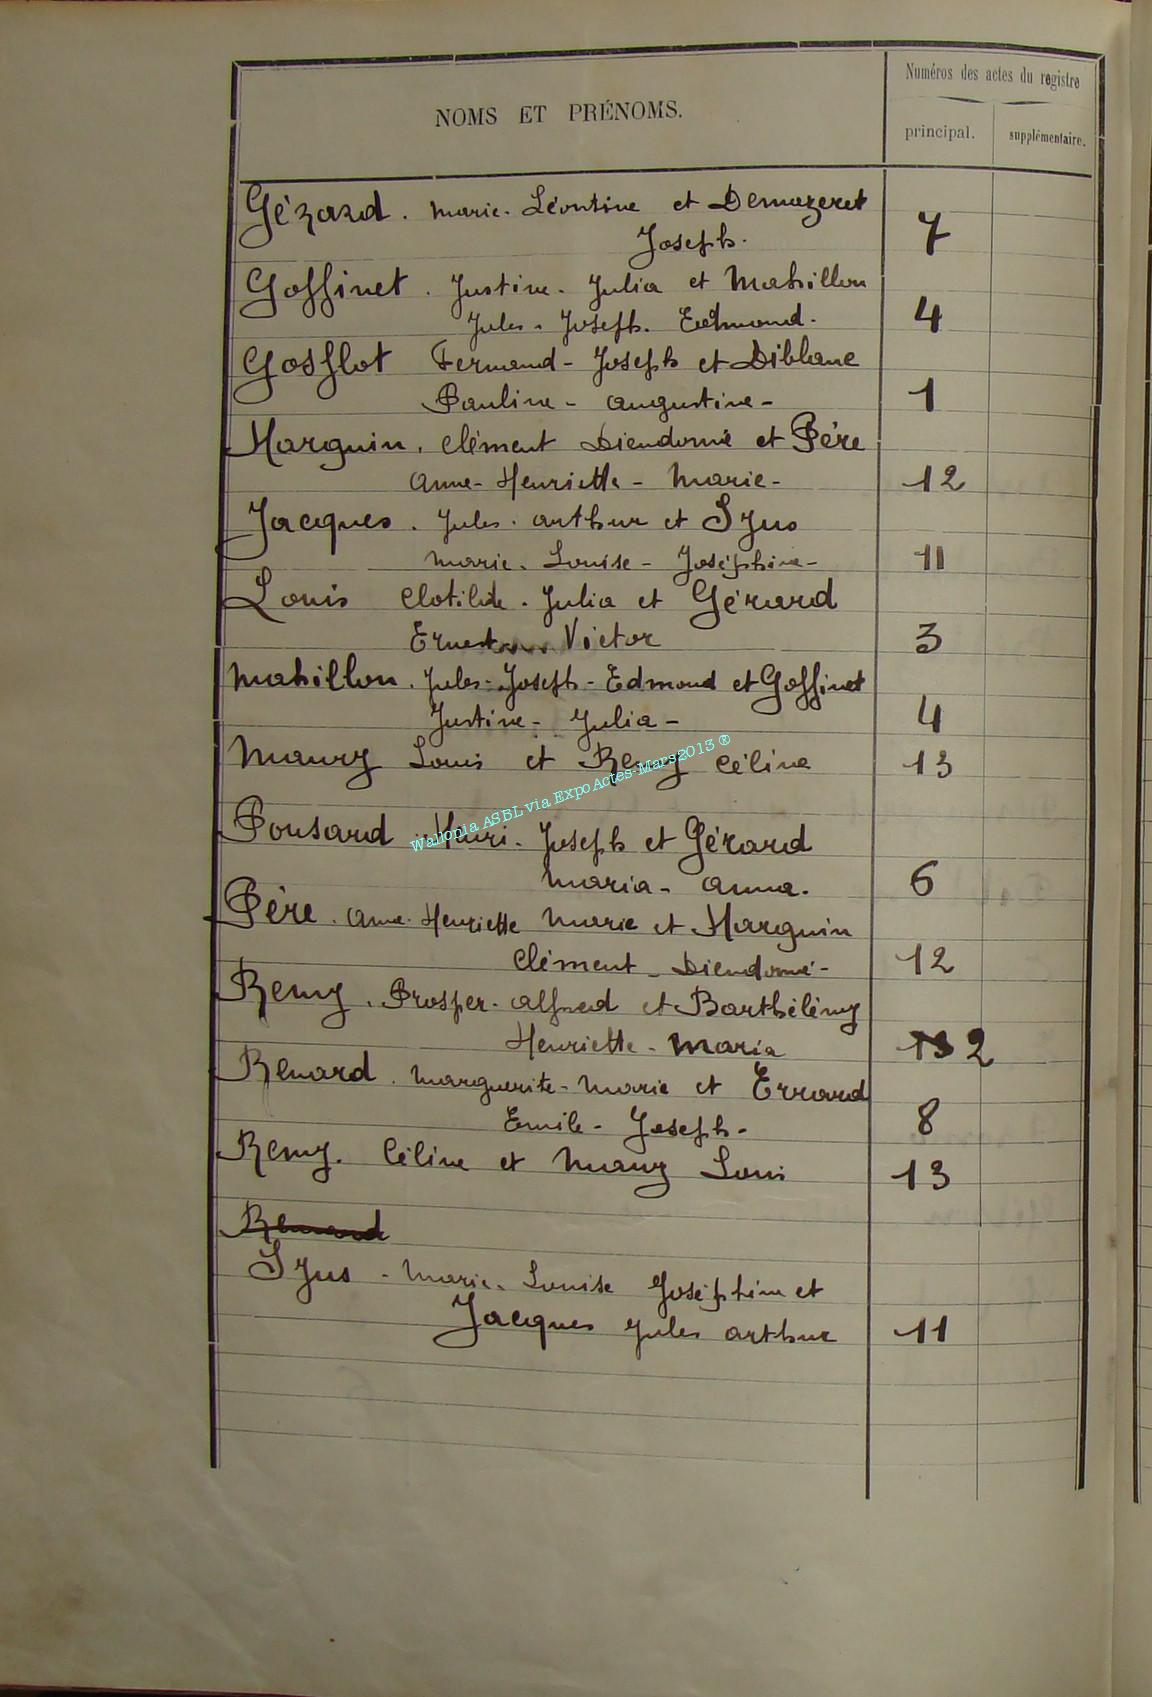 NOMS ET PRÉNOMS.
Numéros des actes du registre
principal.
supplémentaire.
Gérard. Marie-Léontine et Demazeret
Joseph.
7
Goffinet. Justine-Julia et Mahillon
Jules-Joseph. Edmond.
4
Gosflot Fernand-Joseph et Diblane
Pauline-Augustine-
1
Harguin. Clément Dieudonné et Père
Anne-Henriette-Marie-
12
Jacques. Jules. Arthur et Syus
Marie-Louise-Joséphine-
11
Louis Clotilde-Julia et Gérard
Ernest Victor
3
Mahillon. Jules-Joseph-Edmond et Goffinet
Justine-Julia-
4
Maury Louis et Remy Céline
13
Wallonia ASBL via ExpoActes-Mars2013 ®
Ponsard Henri-Joseph et Gérard
Maria-Anna.
6
Père. Anne-Henriette Marie et Harguin
Clément-Dieudonné-
12
Remy. Prosper-Alfred et Barthélémy
Henriette-Maria
2
Renard. Marguerite-Marie et Errard
Emile-Joseph-
8
Remy. Céline et Maury Louis
13
Renard
Syus-Marie-Louise Joséphine et
Jacques Jules Arthur
11